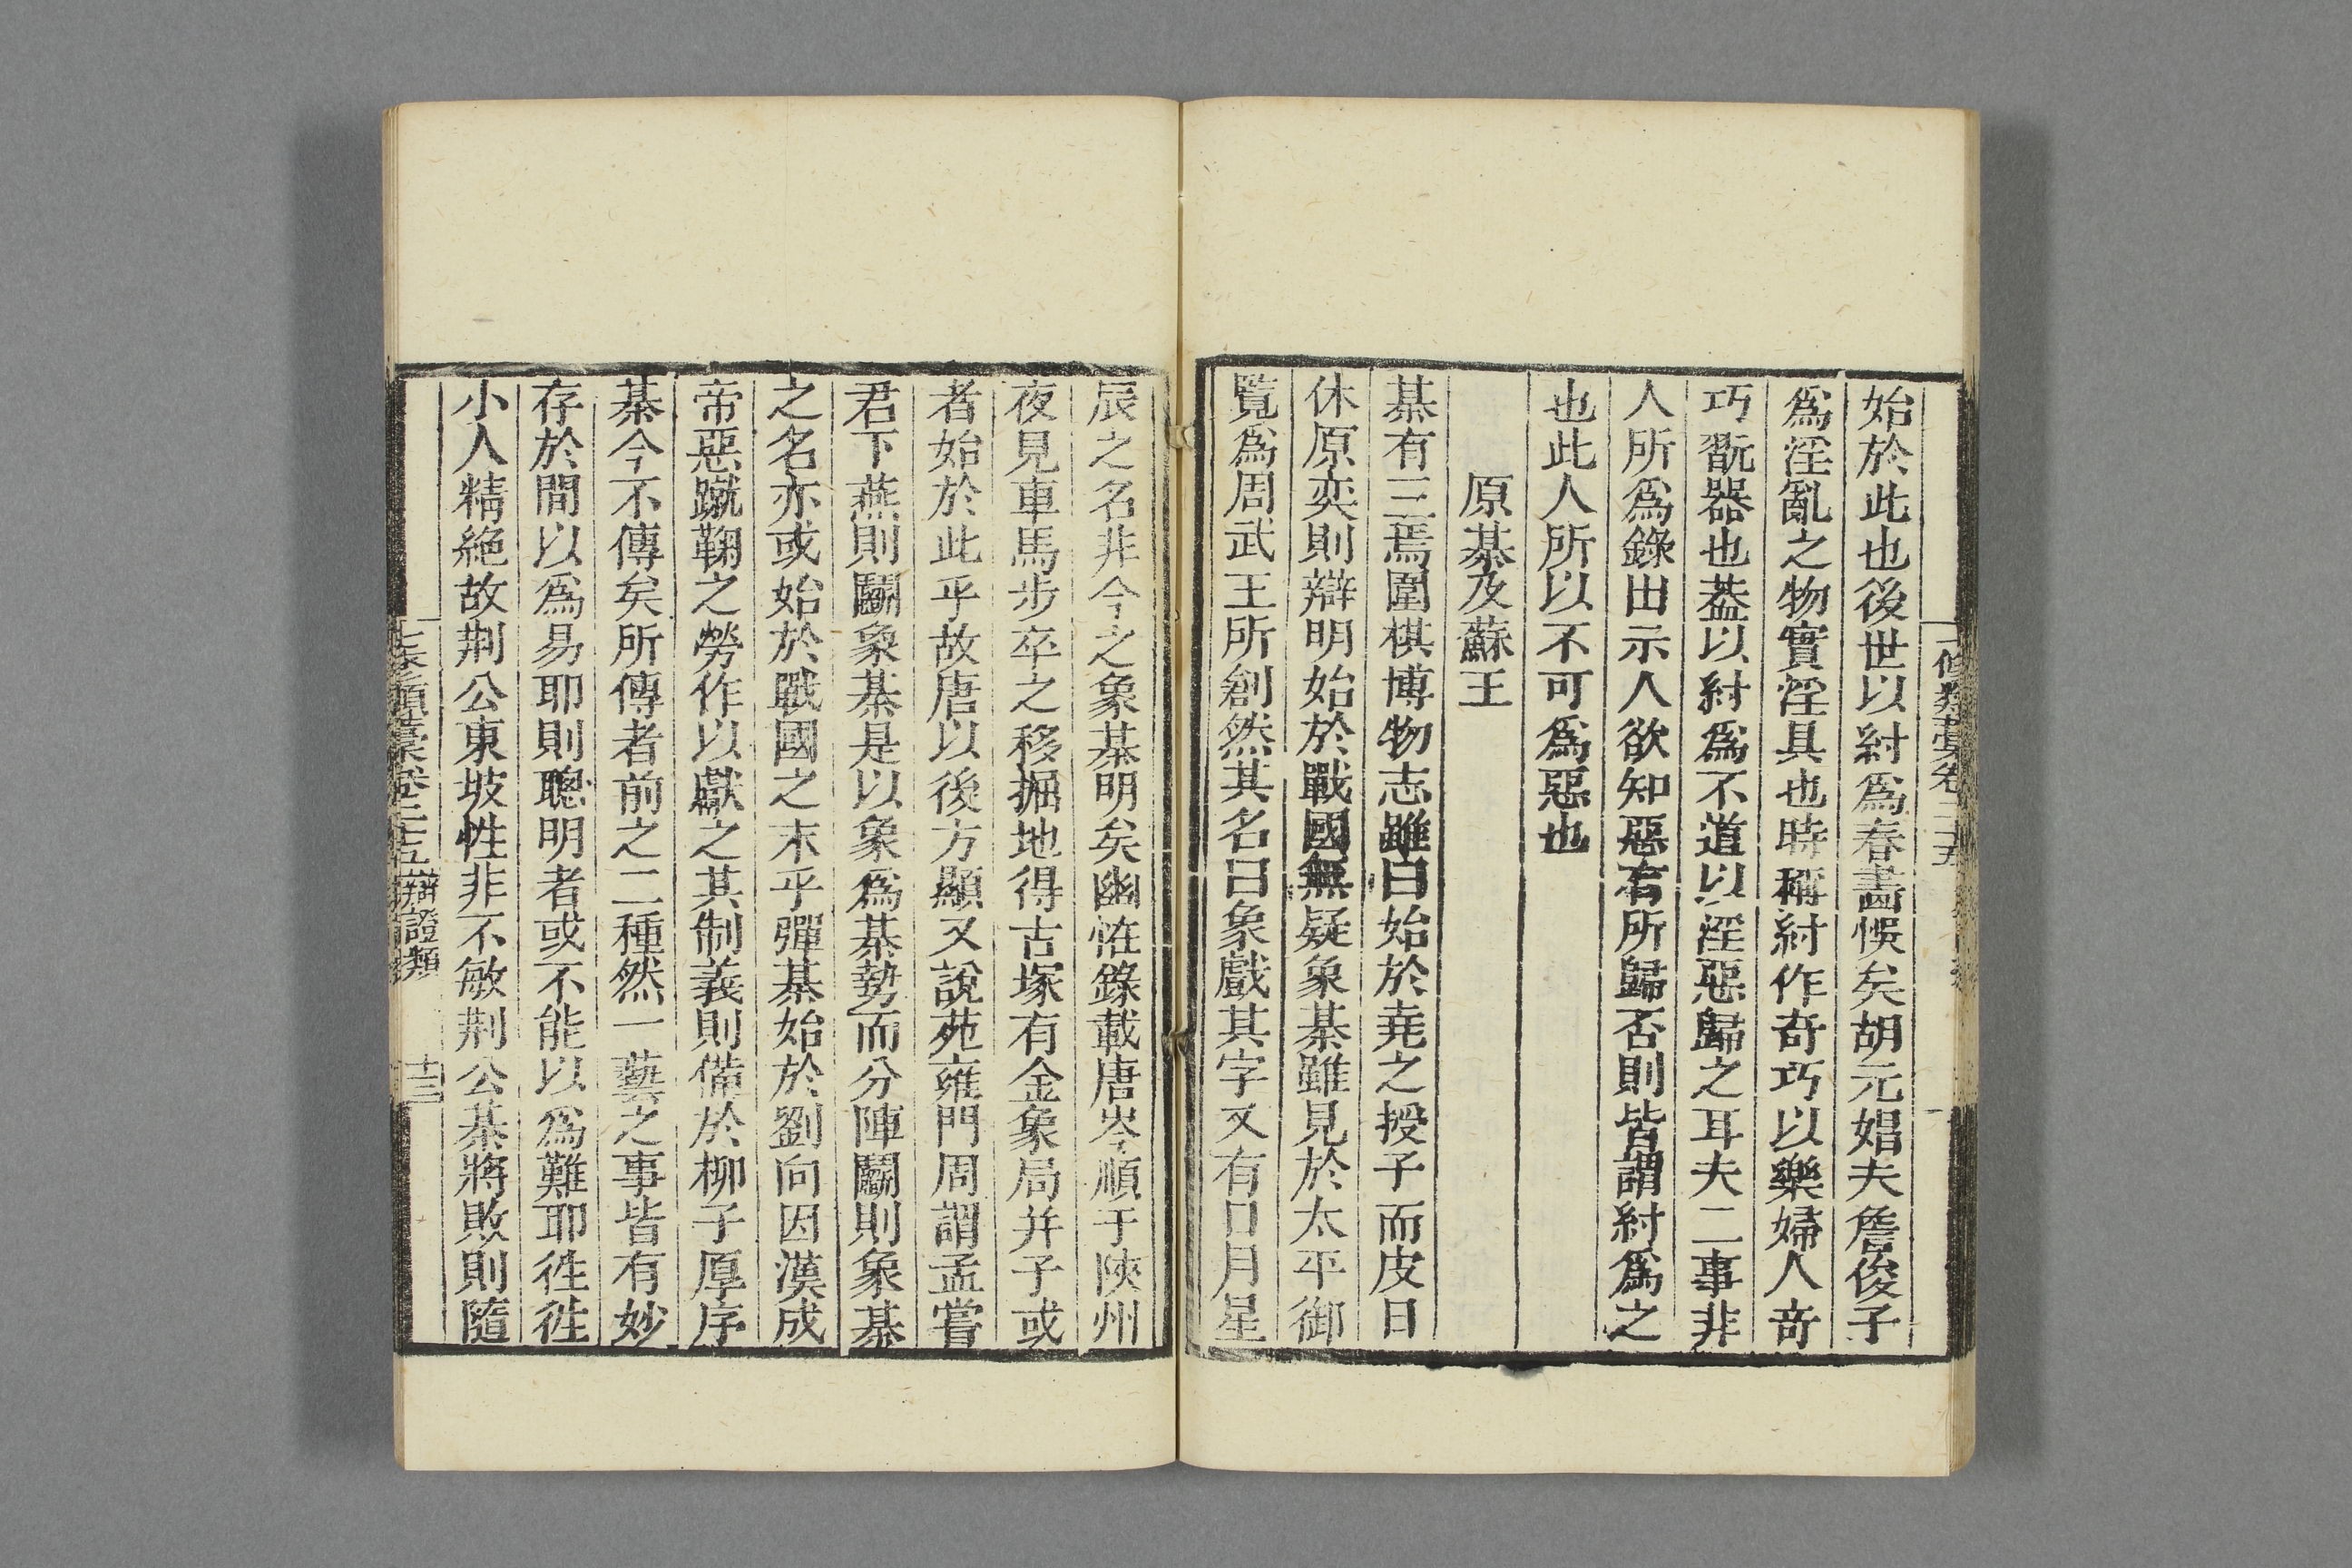 始於此也後世以紂爲春畵悞矣胡元娼夫詹俊子
爲淫亂之物實淫具也時稱紂作奇巧以樂婦人奇
巧翫器也葢以紂爲不道以淫惡歸之耳夫二事非
人所爲錄出示人欲知惡有所歸否則皆謂紂爲之
也此人所以不可爲惡也
原棊及蘇王
棊有三焉圍棋博物志雖曰始於堯之授子而皮日
休原奕則辯明始於戰國無疑象棊雖見於太平御
覧爲周武王所創然其名曰象戲其字又有日月星
辰之名非今之象棊明矣幽恠錄載唐岑順于陝州
夜見車馬步卒之移掘地得古塚有金象局并子或
者始於此乎故唐以後方顯又說苑雍門周謂孟嘗
君下燕則鬭象棊是以象爲棊勢而分陣鬭則象棊
之名亦或始於戰國之末乎彈棊始於劉向因漢成
帝惡蹴鞠之勞作以獻之其制義則備於柳子厚序
棊今不傳矣所傳者前之二種然一藝之事皆有妙
存於間以爲易耶則聰明者或不能以爲難耶徃徃
小人精絶故荆公東坡性非不敏荆公棊將敗則隨
七修類藁卷二十五 辯證類 十三